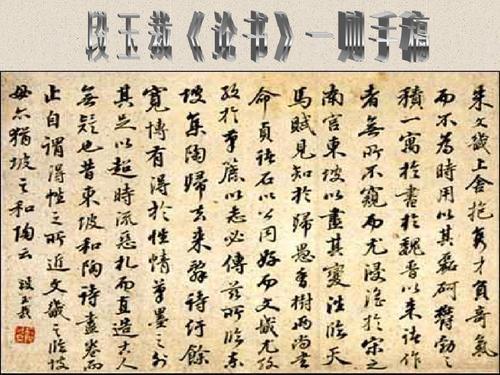 段玉裁《论书》一则手稿
朱文上舍抱秀才負奇氣
而不為時用以其磊砢鬱勃之
積一寓於書於魏晉以來諸作
者無所不窺而尤浸淫於宋之
南宮東坡以盡其變法臨天
馬賦見知於歸愚香樹兩尚書
命貞諸石以公同好而文尤孜
孜於以必傳茲所臨東
坡集陶歸去來辭詩紆餘
寬博有得於性情筆墨之外
其足以超時流惡札而直造古人
無疑也昔東坡和陶詩盡卷而
止自謂得性之所近文之臨坡
毋亦猶坡之和陶云
段玉裁